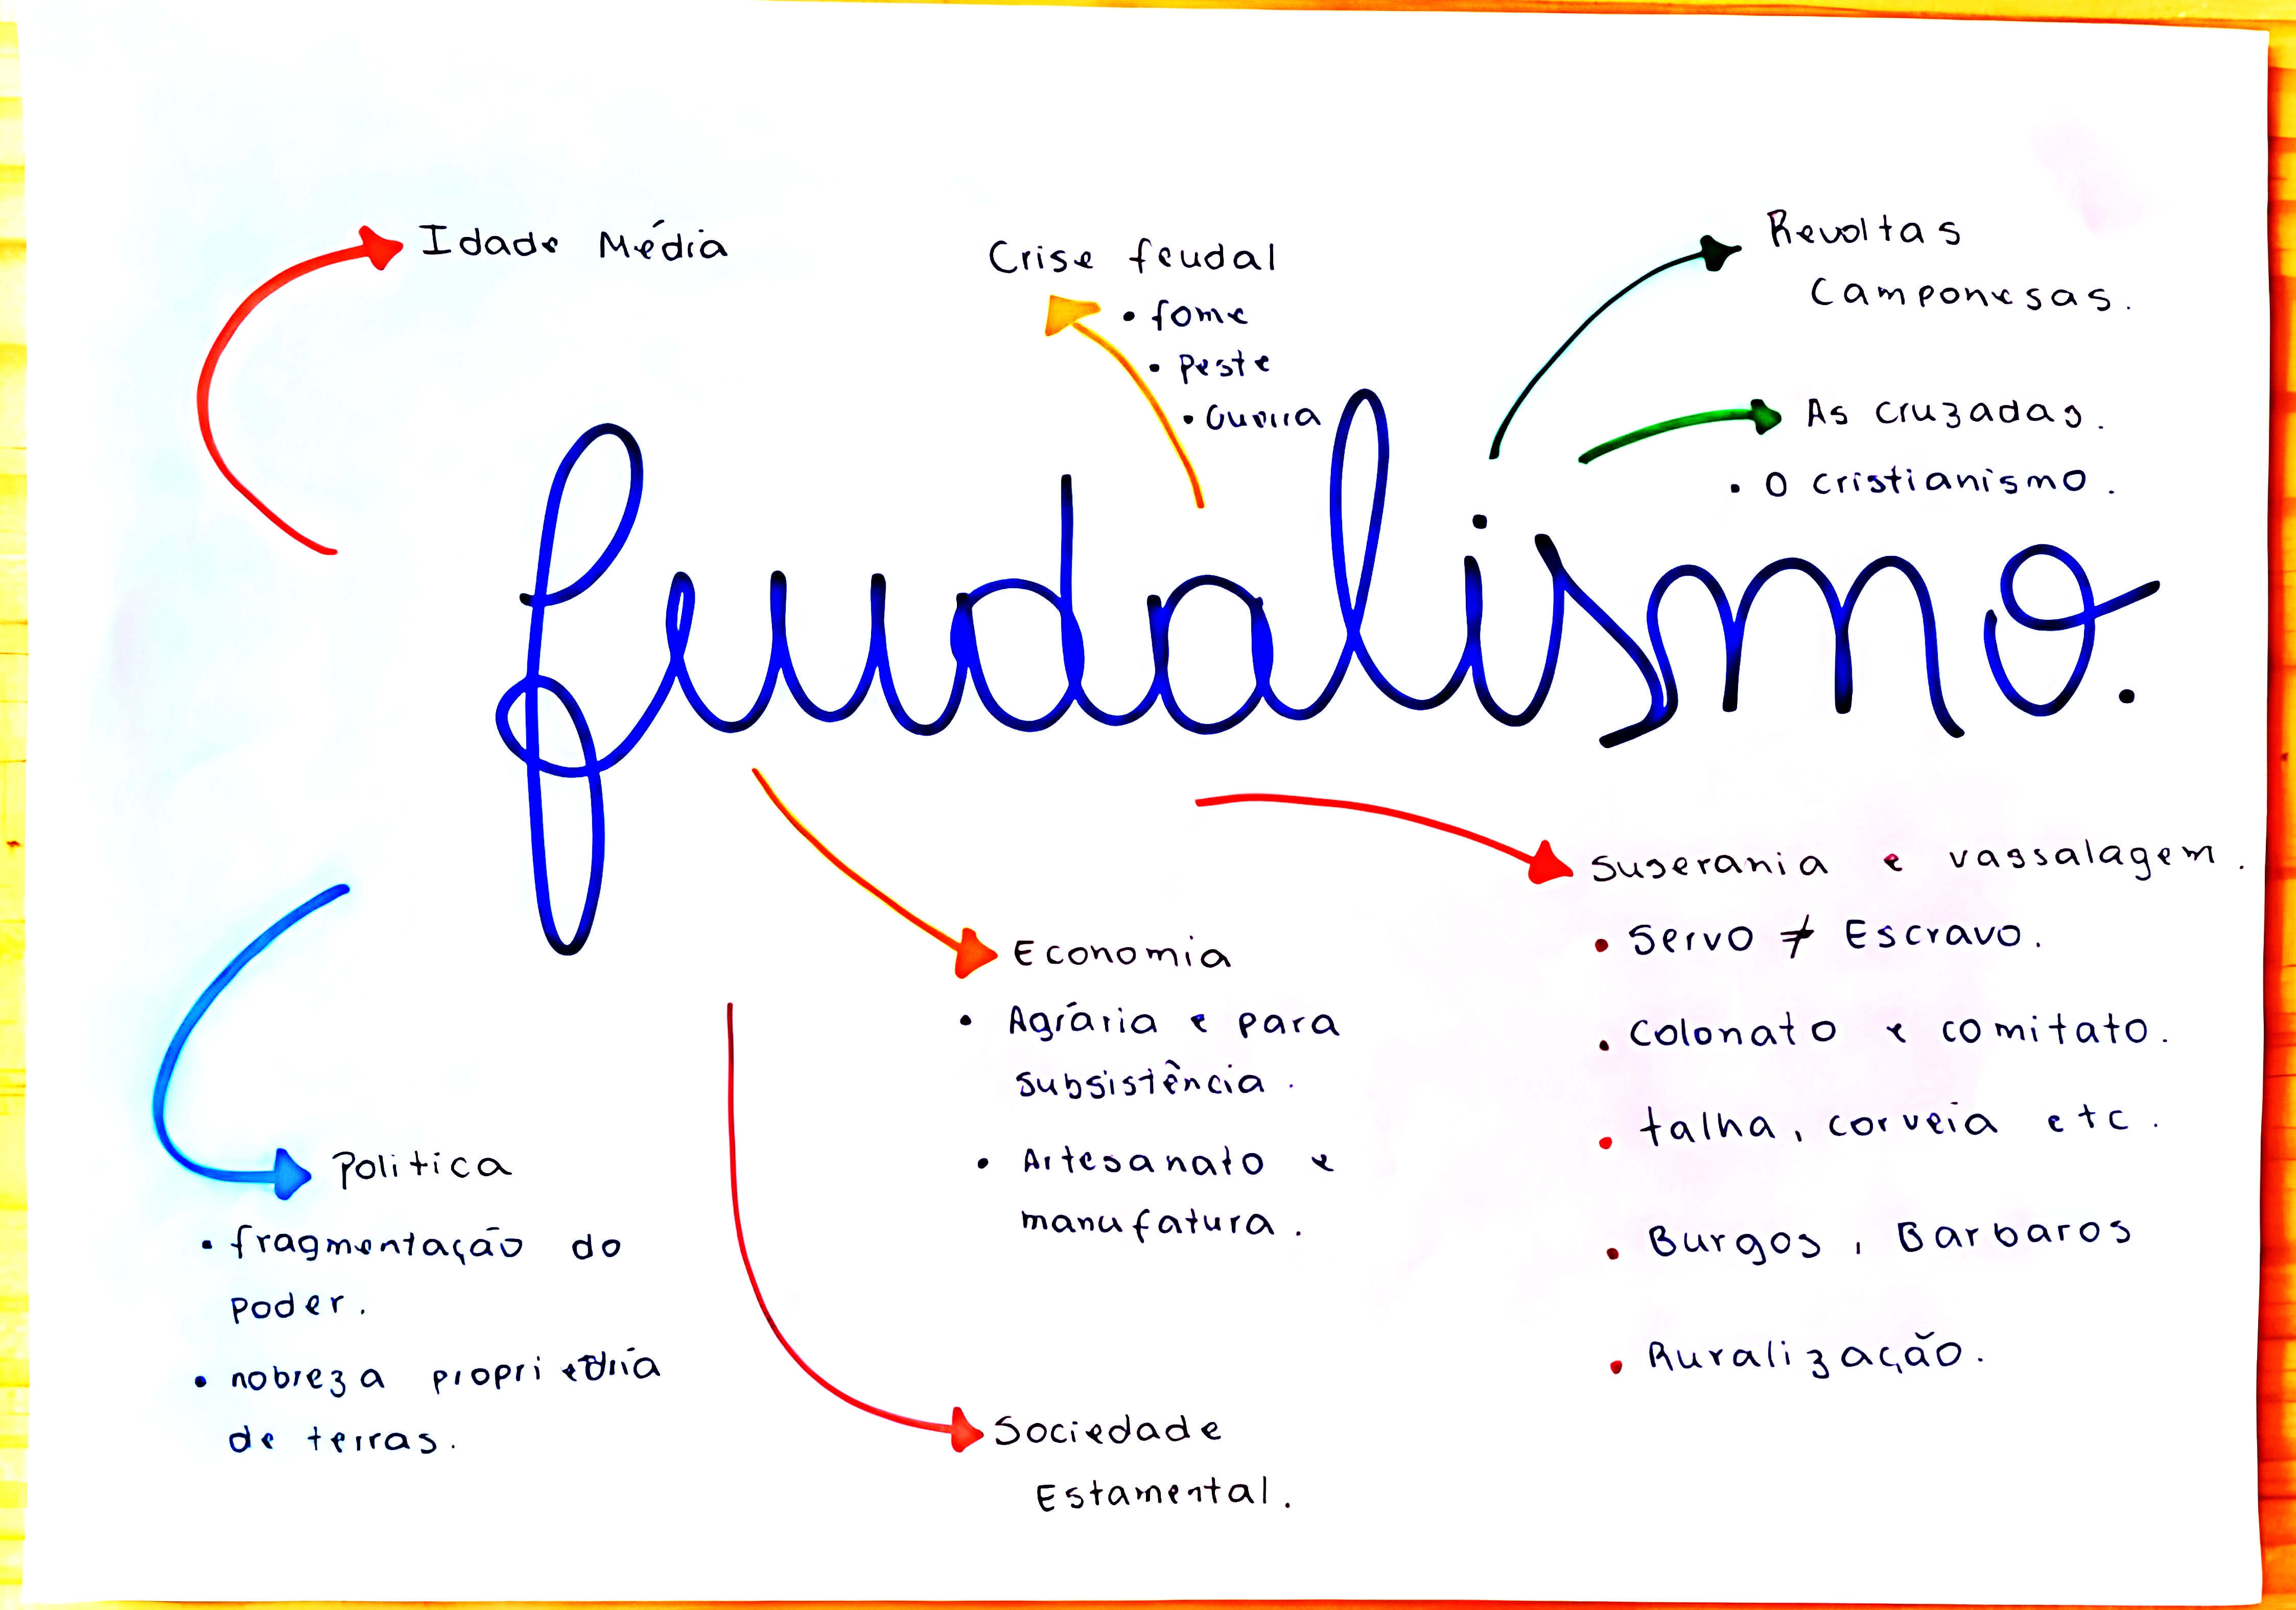 Idade Média
Crise feudal
• fome
• Peste
• Guerra
Revoltas
Camponesas.
As cruzadas.
• O cristianismo.
feudalismo.
Suserania e vassalagem.
• Servo ≠ Escravo.
• Colonato e comitato.
• talha, corveia etc.
• Burgos, Barbaros
• Ruralização.
Economia
• Agrária e para
subsistência.
• Artesanato e
manufatura.
Politica
• fragmentação do
Poder.
• nobreza
de terras.
Sociedade
Estamental.